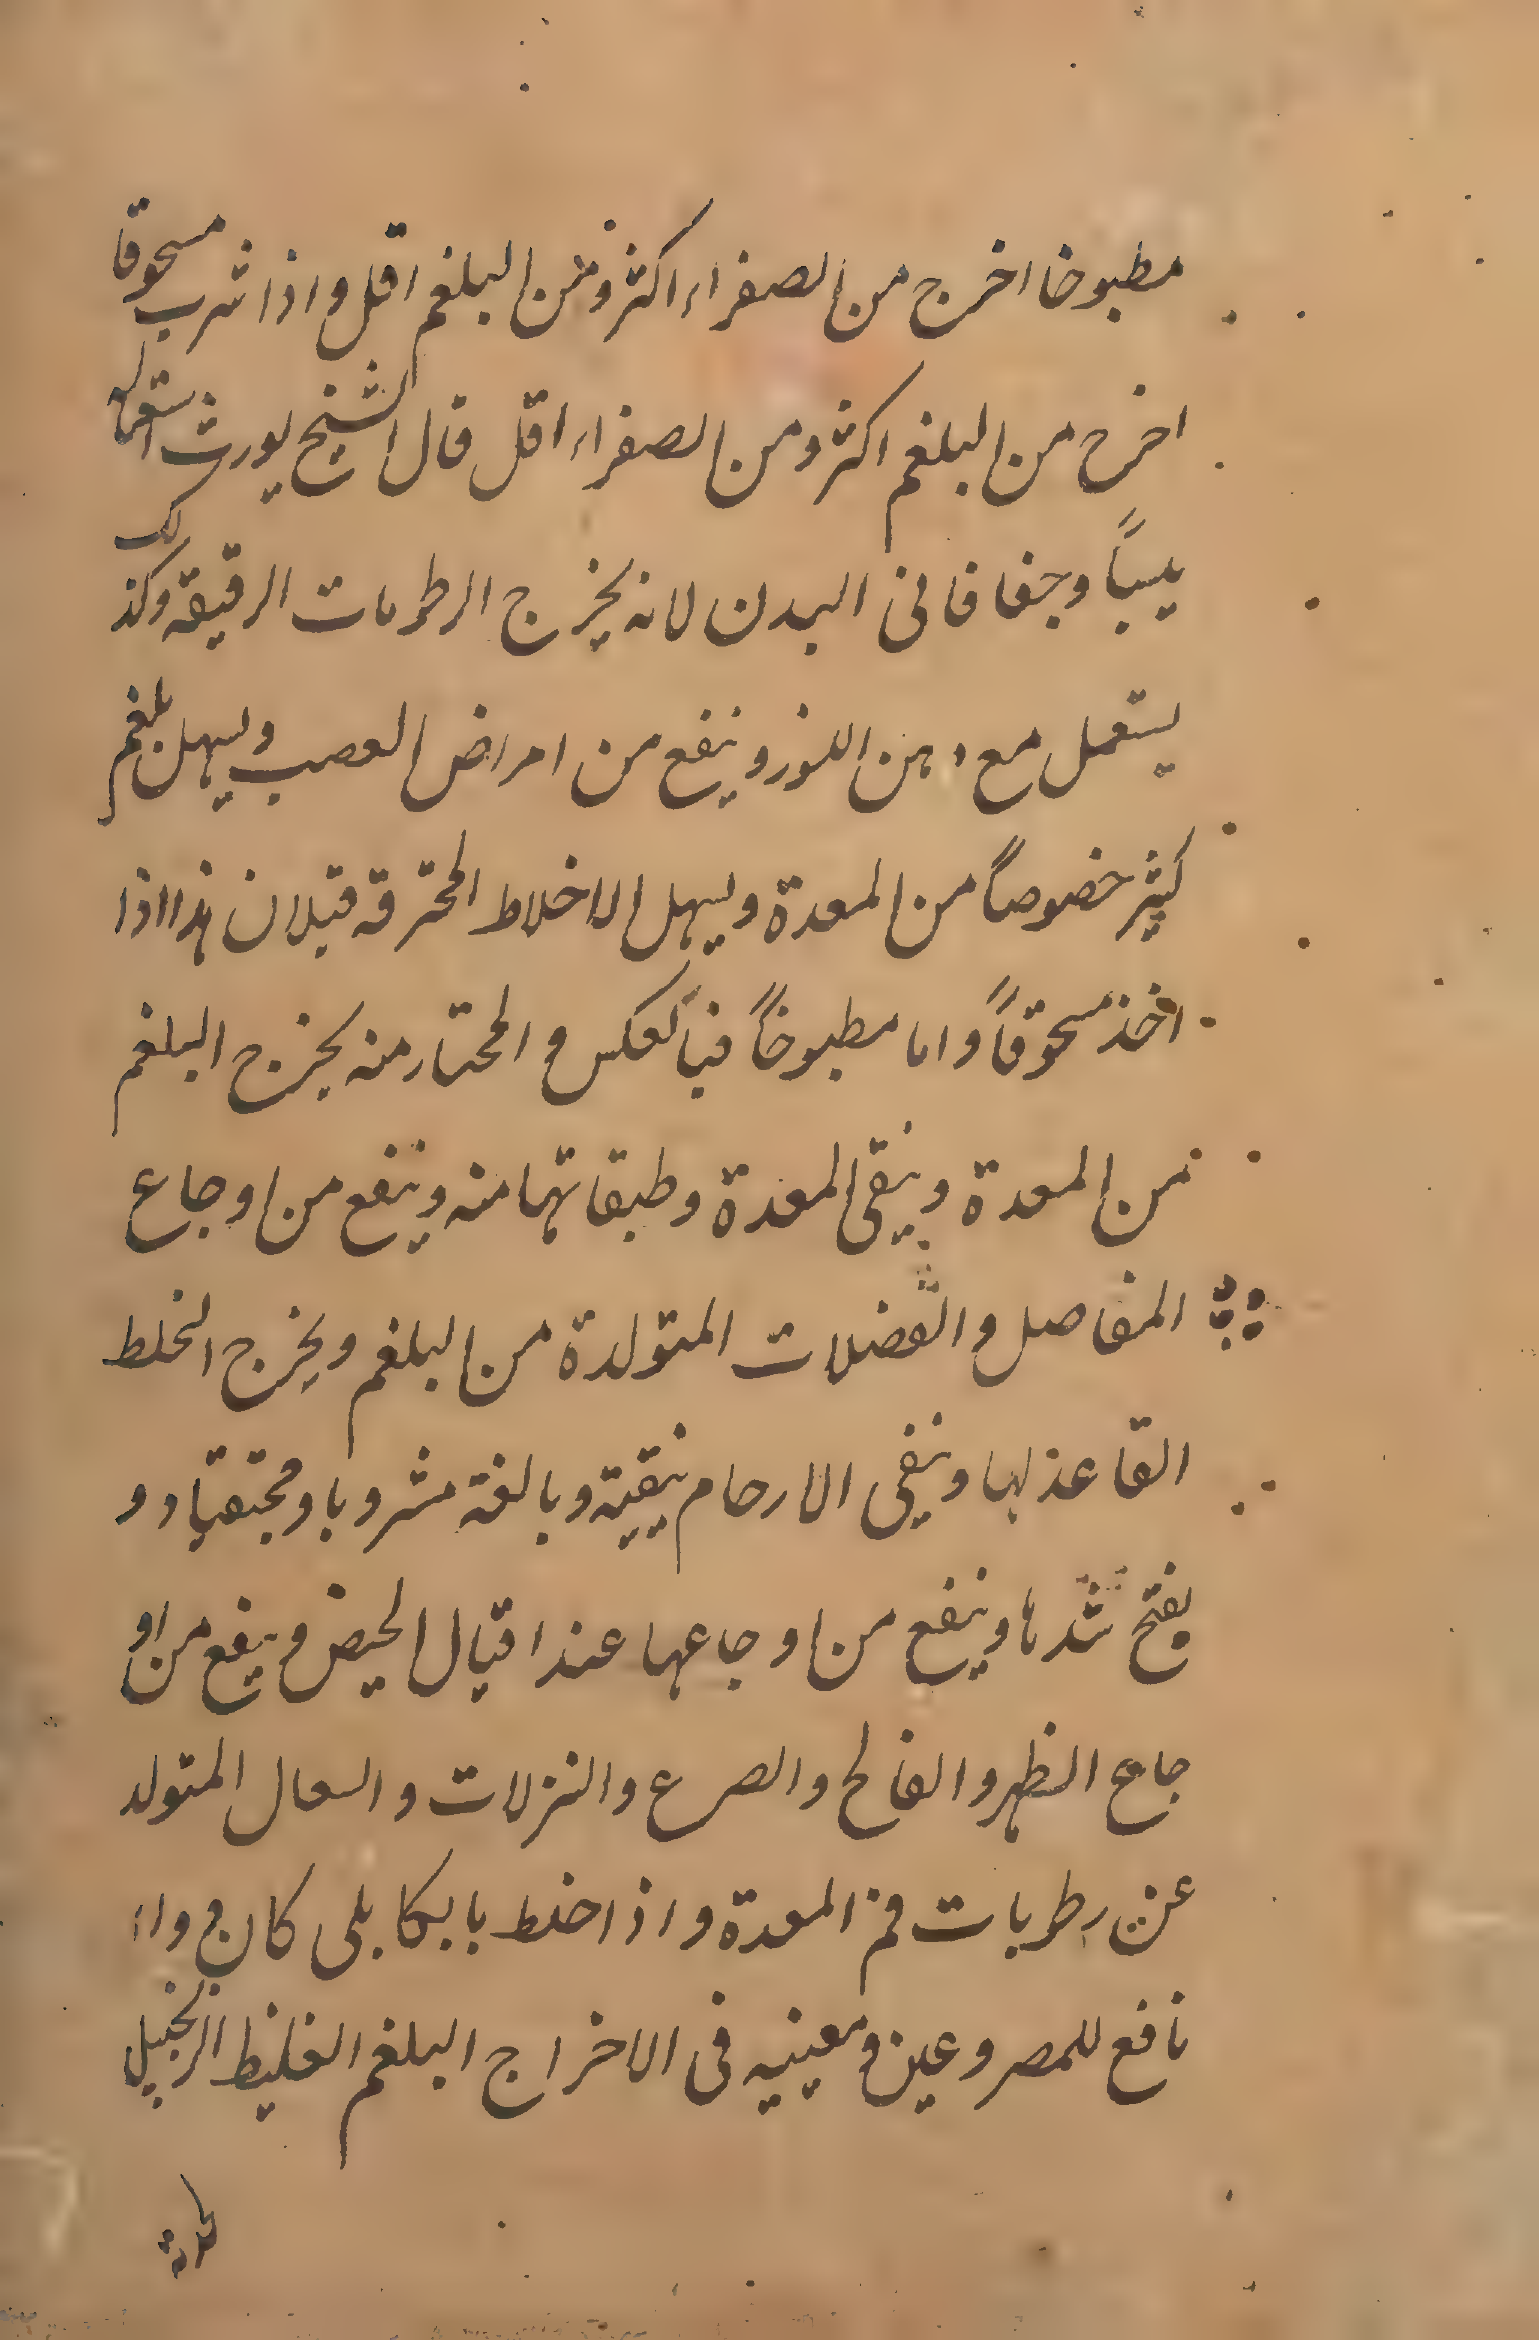 مطبوخا اخرج من الصفراء اكثر ومن البلغم اقل واذا شرب مسحوقا
اخرج من البلغم اكثر ومن الصفراء اقل قال الشيخ يورث استعماله
يبساً وجفافا فى البدن لانه يخرج الرطوبات الرقيقه وكذلك
يستعمل مع دهن اللوز وينفع من امراض العصب ويسهل بلغم
كثير خصوصاً من المعدة ويسهل الاخلاط المحترقه قبلان هذا اذا
اخذ مسحوقاً واما مطبوخاً فبالعكس و المختار منه يخرج البلغم
من المعدة وينقى المعدة وطبقاتها منه وينفع من اوجاع
المفاصل والفضلات المتولدة من البلغم ويخرج الخلط
القاعد لها وينقى الارحام تنقية وبالغة مشروبا ومحتقنا و و
يفتح سددها وينفع من اوجاعها عند اقبال الحيض و ينفع من او
جاع الظهر والفالج والصرع والنزلات والسعال المتولد
عن رطوبات فم المعدة واذا خلط بالكابلى كان دواء
نافع للمصروعين و معينيه فى الاخراج البلغم الغليظ الزنجبيل